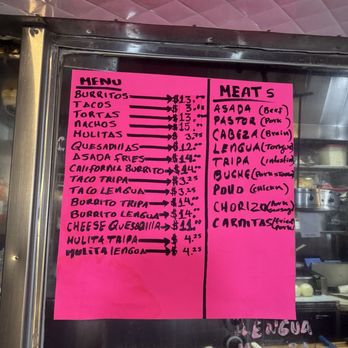 MENU
BURRITOS $13.00
TACOS $3.00
TORTAS $13.00
NACHOS $15.00
MULITAS $3.75
QUESADILLAS $12.00
ASADA FRIES $14.00
CALIFORNIA BURRITO $14.00
TACO TRIPA $3.25
TACO LENGUA $3.25
BURRITO TRIPA $14.00
BURRITO LENGUA $14.00
CHEESE QUESADILLA $11.00
MULITA TRIPA $4.25
MULITA LENGUA $4.25
MEATS
ASADA (Beef)
PASTOR (Pork)
CABEZA (Brain)
LENGUA (Tongue)
TRIPA
BUCHE
POLLO (Chicken)
CHORIZO (Pork Sausage)
CARNITAS (Fried Pork)
LENGUA